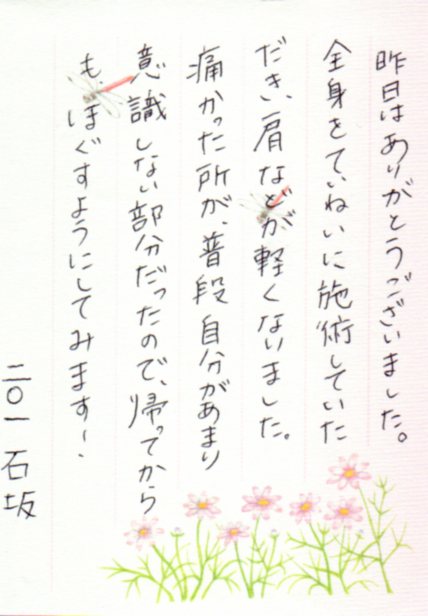 昨日はありがとうございました。
全身をていねいに施術していた
だき、肩などが軽くなりました。
痛かった所が、普段自分があまり
意識しない部分だったので、帰ってから
も、ほぐすようにしてみます〜.
二〇一 石坂